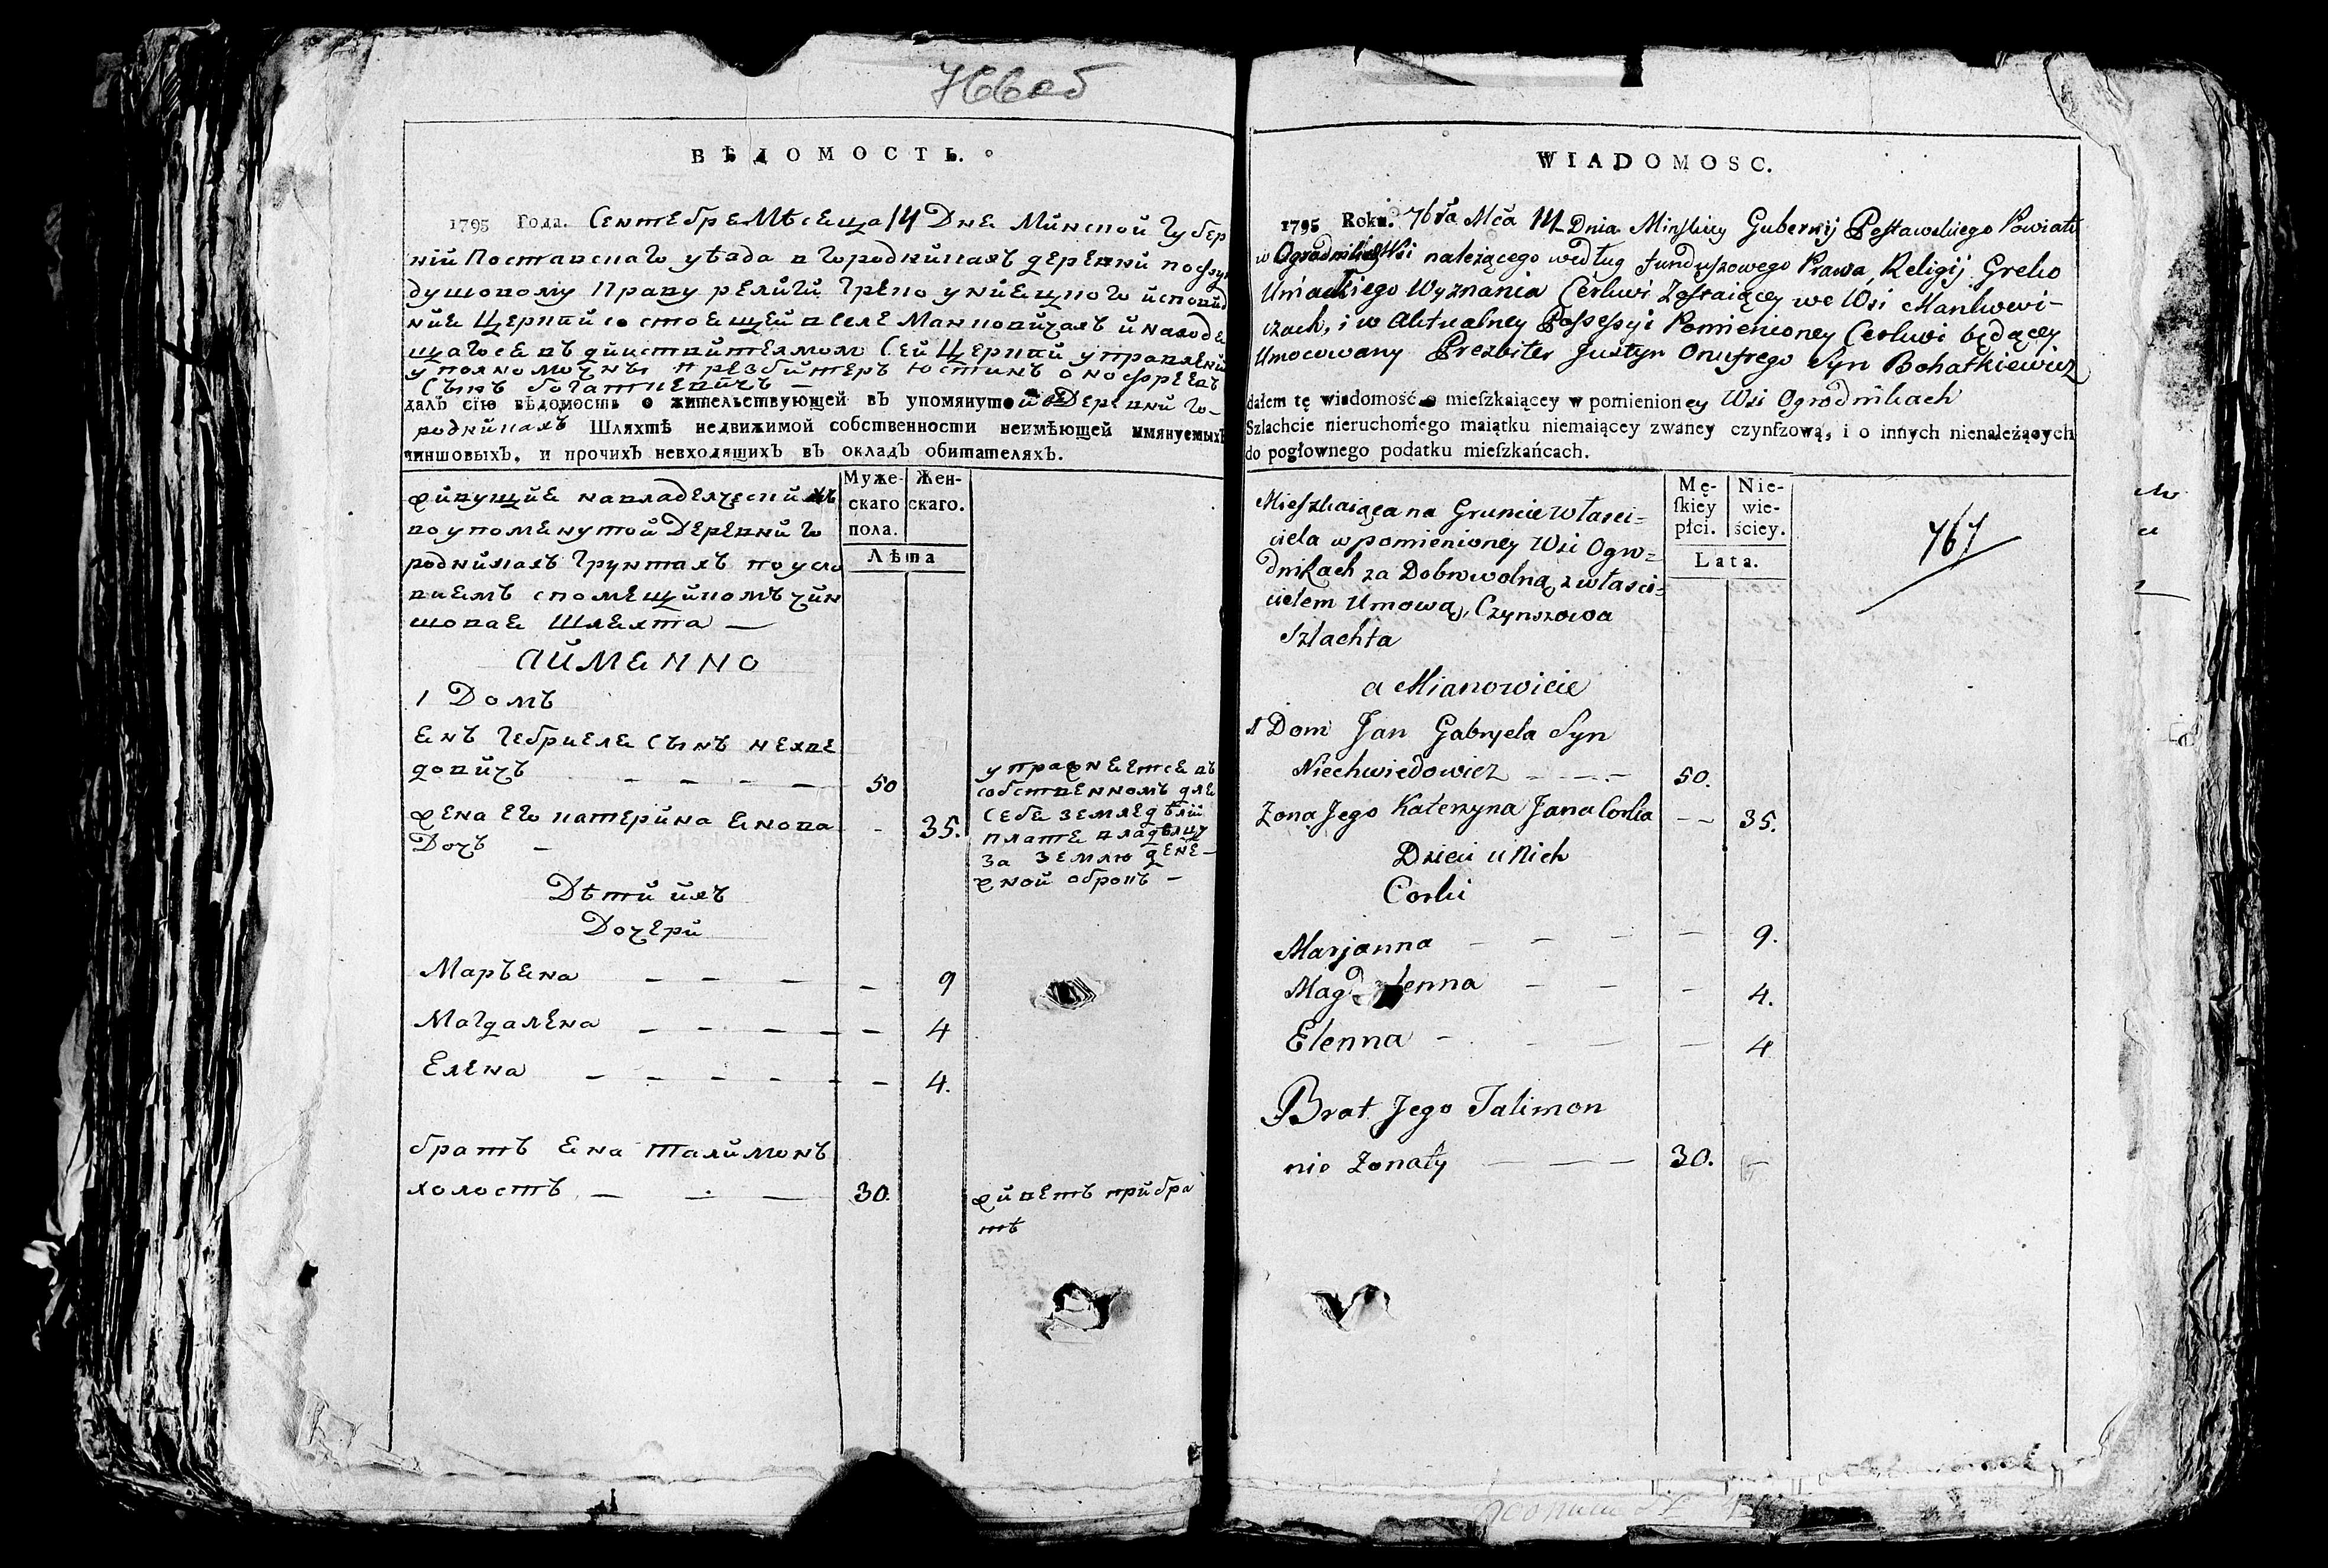 766об
ВѢДОМОСТЬ.
1795 Года. Сентебре Мѣсеца 14 Дне Минской Губер
нїй Поставскаго уѣзда в городникахъ деревни по фун
душовому праву религи греко униецкого исповид
ние Церкви состоещей в селе Манковичахъ и находе
щагосе въ дийствителмом Сей Церкви управлени
уполномочны презбитеръ Юстинъ онофреевъ
Сынъ богаткевичъ —
далъ сїю вѣдомость о жительствующей въ упомянутой Деревни го-
родникахъ Шляхтѣ недвижимой собственности неимѣющей имянуемыхъ
чиншовыхъ, и прочихъ невходящихъ въ окладъ обитателяхъ.
Муже-скаго пола. Жен-скаго.
Лѣта
живущие на владелческихъ
во упоменутой Деревни го
родникахъ грунтахъ по усло
виемъ с помещикомъ чин
шовае Шлехта —
а имЕнно
1 Домъ
Енъ Гебриеле Сынъ нехве
довичъ — — — — 50
жена его катерина Енова - 35.
Дочъ —
упражнеетсе въ
собственномъ дле
себе земледѣлїи
плате владелцу
за землю дене-
жной оброкъ —
Дѣти ихъ
Дочери
Маръена — — — — 9
Магдалена — — — — — 4
Елена — — — — — — 4.
братъ Ена талимонъ
холостъ — — — 30.
живетъ при бра
тѣ
WIADOMOSC.
1795 Roku. 7bra Mca 14 Dnia Minskiey Gubernij Postawskiego Powiatu
w Ogrodnikach Wsi należącego według funduszowego Prawa Religij Greko
Uniackiego Wyznania Cerkwi Zostaiącey we Wsi Mankowi-
czach, i w Aktualney Possessyi Pomienioney Cerkwi będącey
Umocowany Prezbiter Justyn Onufrego Syn Bohatkiewicz
dałem tę wiadomość o mieſzkaiącey w pomienioney Wsi Ogrodnikach
Szlachcie nieruchomego maiątku niemaiącey zwaney czynſzową, i o innych nienależących
do pogłownego podatku mieſzkańcach.
Mę-ſkiey płci. Nie-wie-ściey.
Lata.
767
Mieszkaiąca na Gruncie własci=
ciela w pomienioney Wsi Ogro=
dnikach za Dobrowolną z własci=
cielem Umową, Czynszowa
Szlachta
a Mianowicie
1 Dom Jan Gabryela Syn
Niechwiedowicz — — — 50.
Zona Jego Katerzyna Jana Corka — — 35.
Dzieci u Nich
Corki
Marjanna — — — — 9.
Magdalenna — — — 4.
Elenna — — — — 4
Brat Jego Talimon
nie Zonaty — — — 30. —